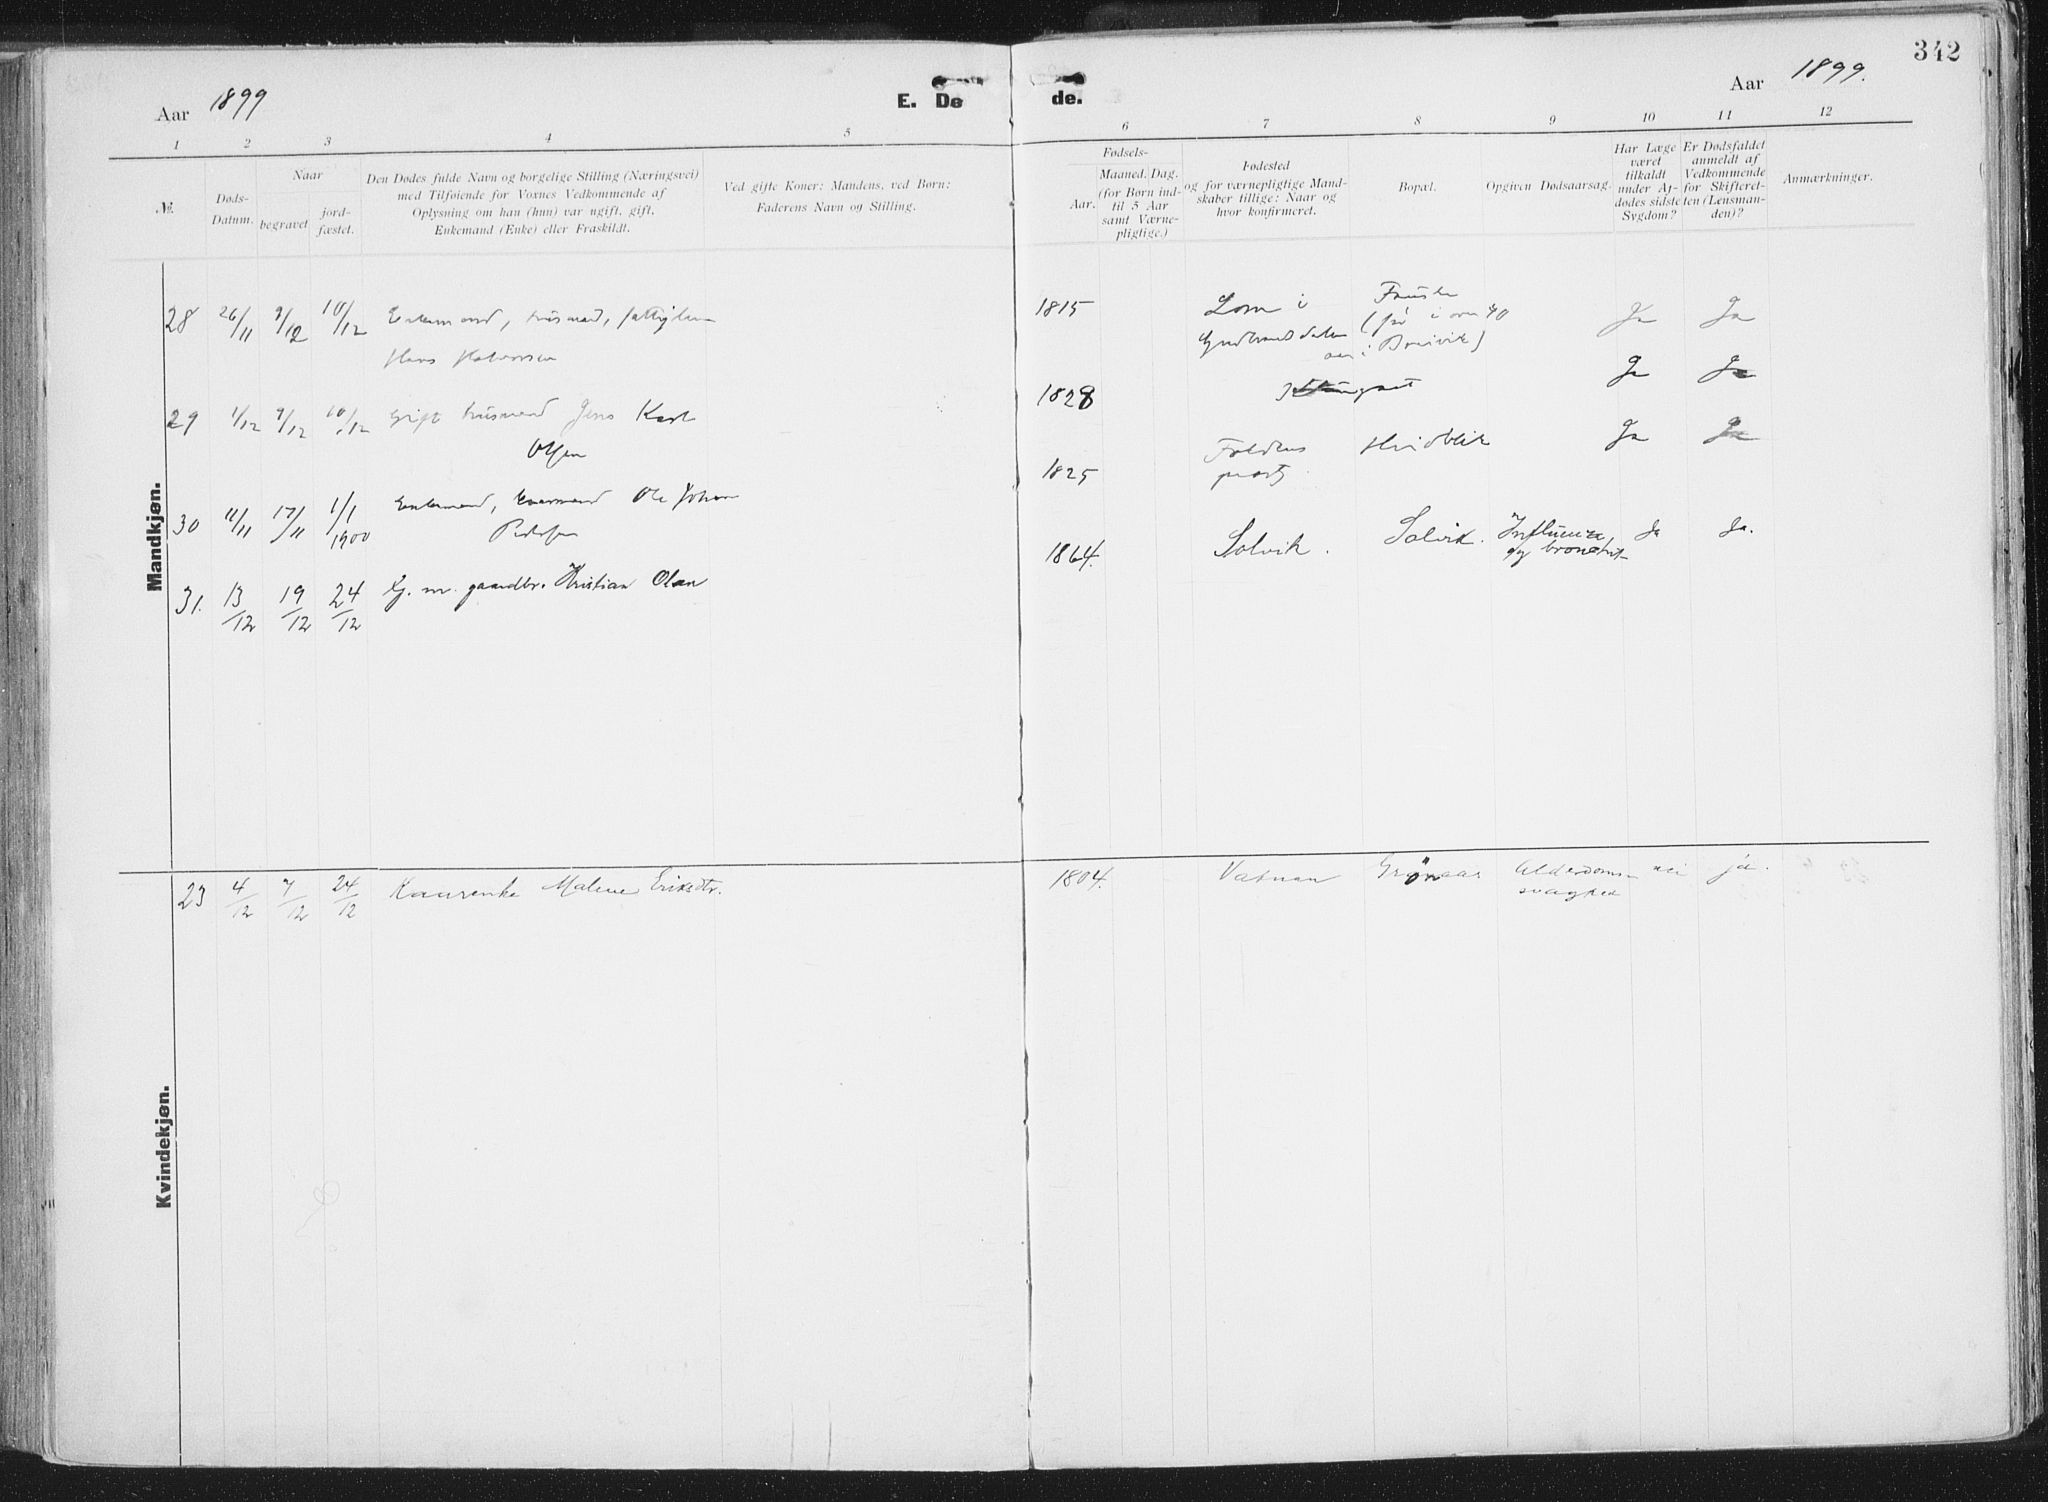 Aar 1899
E. Dø de.
Aar 1899.
342
1 2 3 4 5 6 7 8 9 10 11 12
№.
Døds-
Datum.
Naar
begravet
jord-
fæstet.
Den Dødes fulde Navn og borgelige Stilling (Næringsvei)
med Tilføiende for Voxnes Vedkommende af
Oplysning om han (hun) var ugift, gift,
Enkemand (Enke) eller Fraskildt.
Ved gifte Koner: Mandens, ved Børn:
Faderens Navn og Stilling.
Fødsels-
Aar.
Maaned. Dag.
(for Børn ind-
til 5 Aar
samt Værne-
pligtige.)
Fødested
og for værnepligtige Mand-
skaber tillige: Naar og
hvor konfirmeret.
Bopæl.
Opgiven Dødsaarsag.
Har Læge
været
tilkaldt
under Af-
dødes sidste
Sygdom?
Er Dødsfaldet
anmeldt af
Vedkommende
for Skifteret-
ten (Lensman-
den)?
Anmærkninger.
Mandkjøn.
28 26/11 9/12 10/12 Enkemand, husmand,
Hans Halvorsen
1815 Lom i
Gudbrandsdalen
Fauske
i Breivik)
Ja Ja
29 1/12 9/12 10/12 Gift husmand Jens Karl
Olsen
1828
Ja Ja
30 11/11 17/11 1/1 1900 Enkemand, Ole Johan
Pedersen
1825 Foldens
Hvidblik Ja Ja
31. 13/12 19/12 24/12 Gj. m. gaardbr. Kristian Olsen
1864. Solvik. Solvik. Influenza
og bronchit
Ja Ja.
Kvindekjøn.
23 4/12 7/12 24/12 Kaurenke Malene Eriksdtr.
1804. Vatnan Grønaas Alderdoms-
svaghed
nei ja.